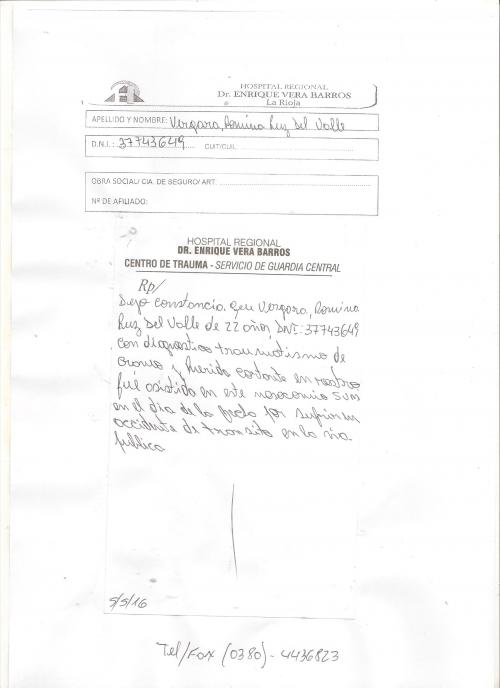 HOSPITAL REGIONAL
Dr. ENRIQUE VERA BARROS
La Rioja
APELLIDO Y NOMBRE: Vergara, Romina Luz Del Valle
D.N.I.: 37743649 CUIT/CUIL:
OBRA SOCIAL/ CIA. DE SEGURO/ ART:
Nº DE AFILIADO:
HOSPITAL REGIONAL
DR. ENRIQUE VERA BARROS
CENTRO DE TRAUMA - SERVICIO DE GUARDIA CENTRAL
Rp/
Dejo constancia. Que Vergara, Romina
Luz Del Valle de 22 años, DNI: 37743649
con diagnostico traumatismo de
craneo y herida cortante en rostro
fue asistida en este nosocomio
en el dia de la fecha por sufrir un
accidente de transito en la via
publica
5/5/16
Tel/Fax (0380)-4436823